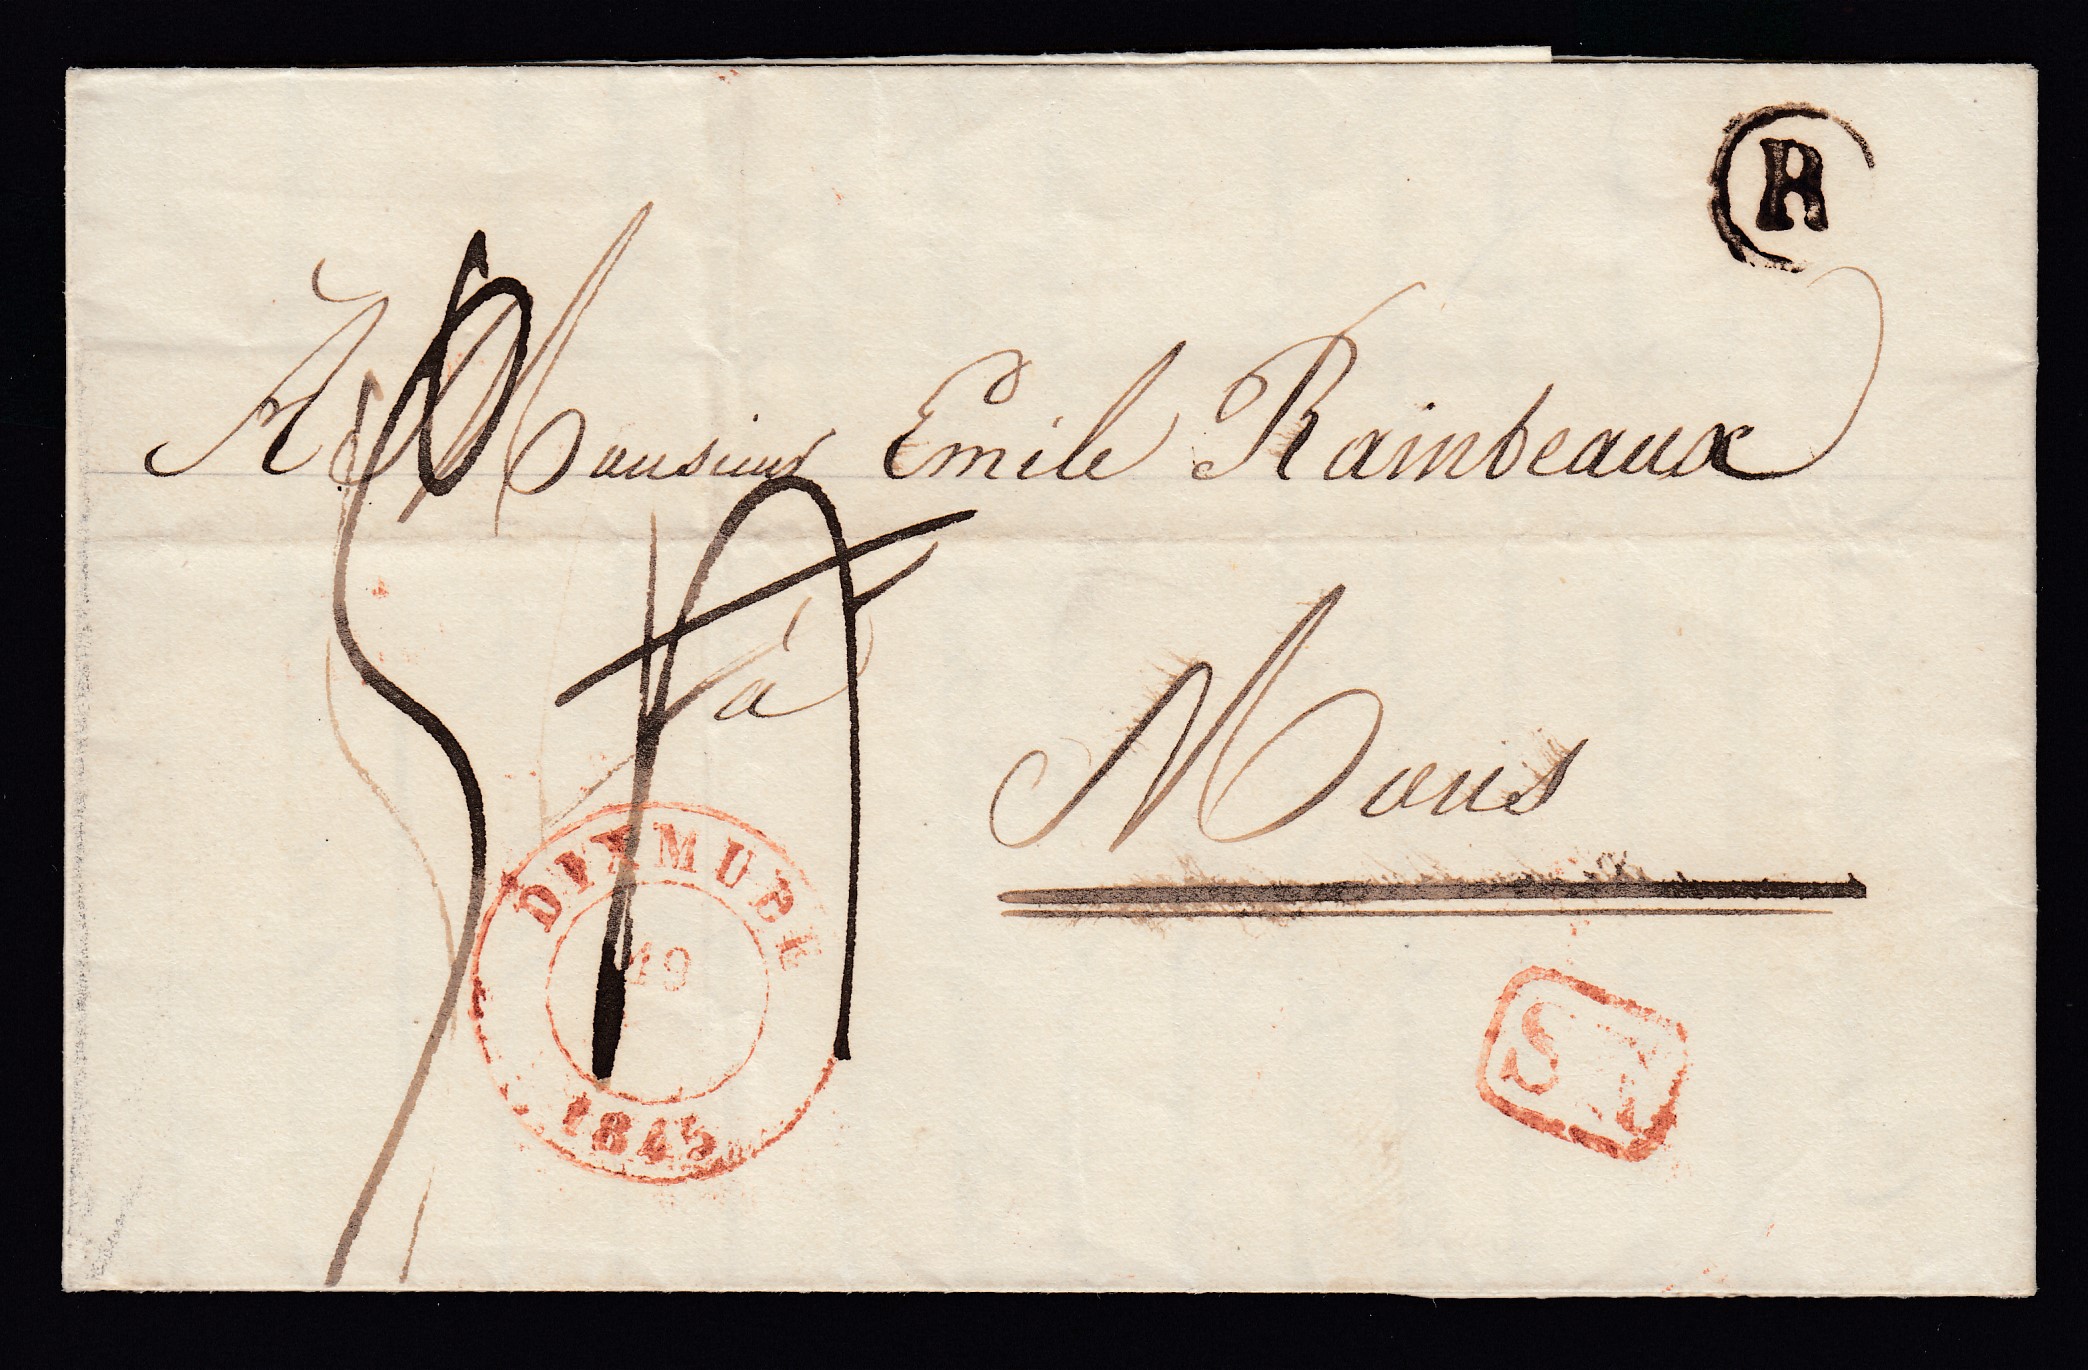 R
A Monsieur Emile Rainbeaux
à
Mons
DIXMUDE
19
1845
S